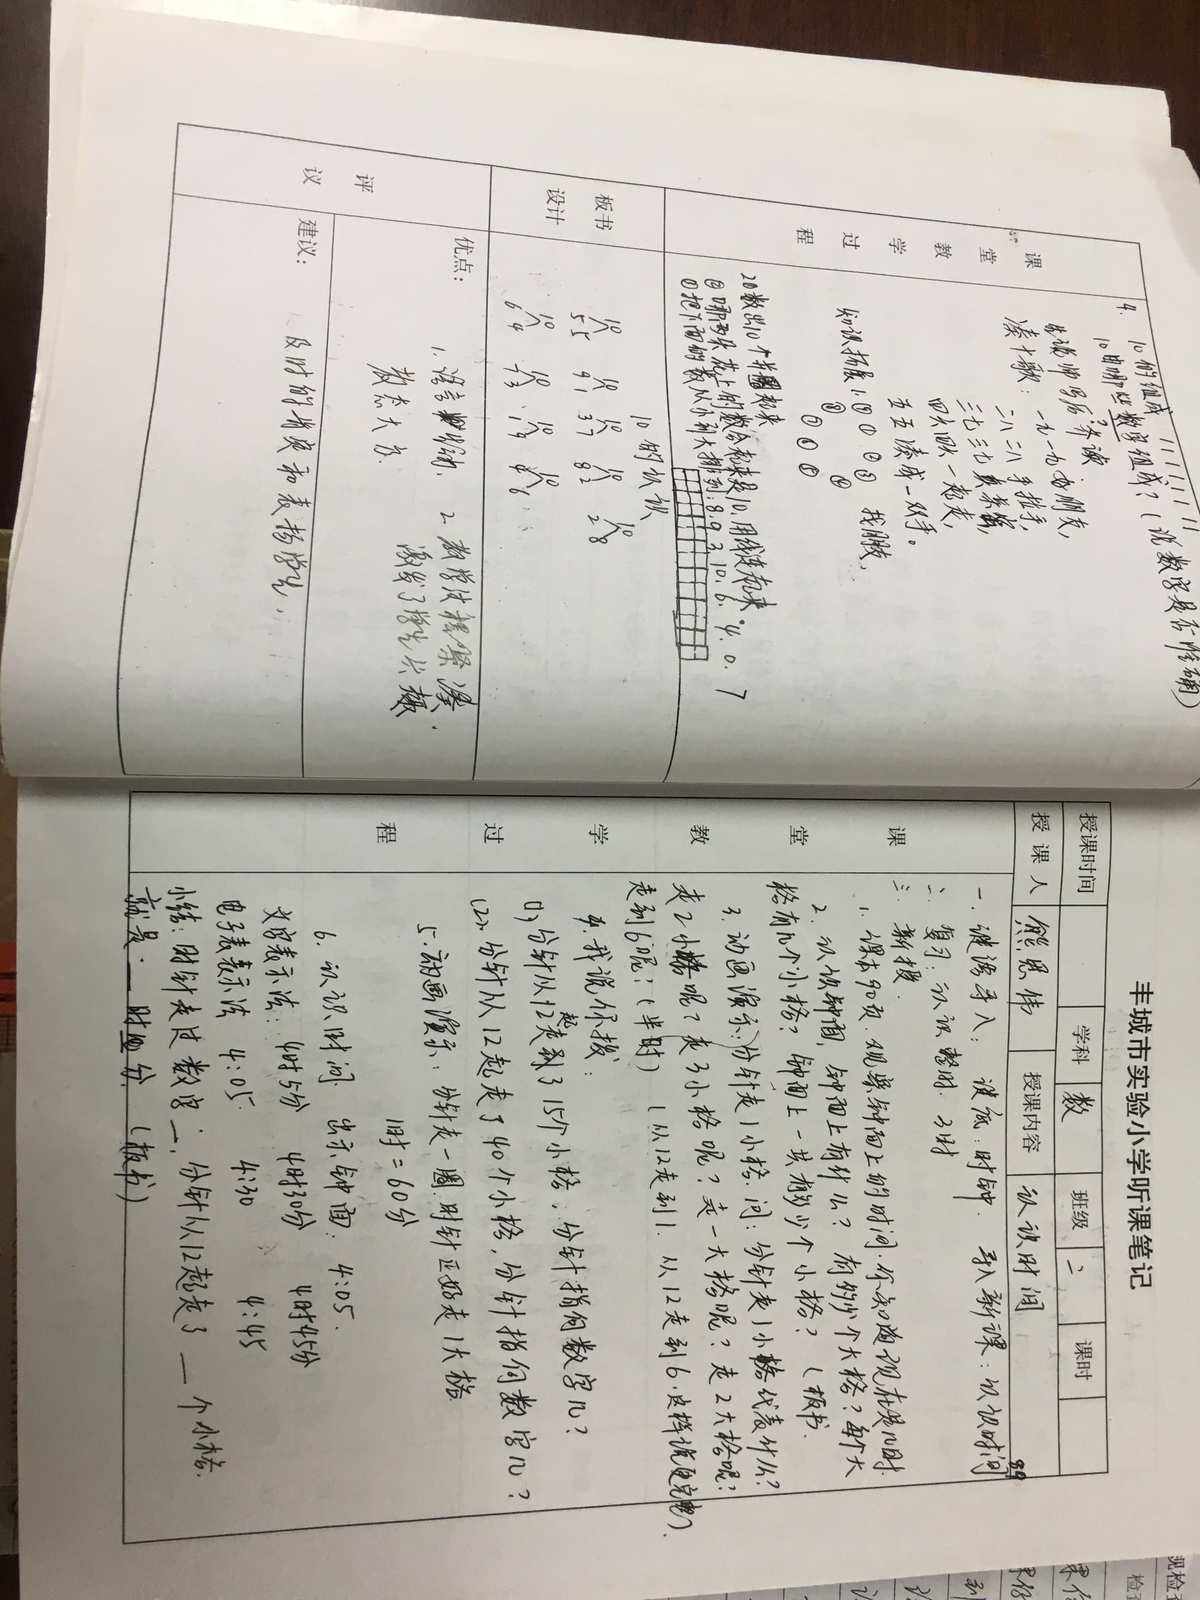 4. 10的组成
10由哪些数字组成?(说数字是否准确)
先说 师写后齐读
凑十歌: 一九一九好朋友,
二八二八手拉手,
三七三七真亲密,
四六四六一起走,
五五凑成一双手。
知识拓展
找朋友,
①把下面的数从小到大排列: 8.9.3.10.6.4.0.7
②哪两朵花上的数合起来是10,用线连起来。
课堂教学过程
板书设计
10的认识
10 10 10 10 10
5 5 9 1 3 7 8 2 2 8
10
6 4
评议
优点:
1. 语言
教态大方.
2. 教学过程紧凑.
激发了学生兴趣
建议:
及时的肯定和表扬学生.
丰城市实验小学听课笔记
授课时间 学科 数 班级 二 课时
授课人 熊思伟 授课内容 认识时间
课堂教学过程
一. 谜语导入: 谜底:时钟. 导入新课:认识时间
二. 复习:认识整时.
三. 新授.
1. 课本90页.观察钟面上的时间.你知道现在是几时
2. 认识钟面, 钟面上有什么? 有多少个大格?每个大
格有几个小格? 钟面上一共有多少个小格? (板书.
3. 动画演示:分针走1小格.问: 分针走1小格代表什么?
走2小格呢? 走3小格呢? 走一大格呢? 走2大格呢?
走到6呢?(半时) (从12走到1. 从12走到6.这样说更完整).
4. 我说你拨:
(1), 分针从12起走到了15个小格,分针指向数字几?
(2). 分针从12起走了40个小格,分针指向数字几?
5. 动画演示: 分针走一圈.时针正好走1大格
1时=60分
6. 认识时间 出示钟面: 4:05.
文字表示法: 4时5分 4时30分 4时45分
电子表表示法 4:05. 4:30 4:45
小结: 时针走过数字一, 分针从12起走了 一 个小格.
就是. 一时 一分 (板书)